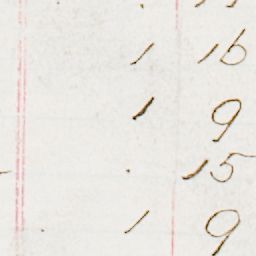 1 16
1 9
. 15
. 1 9